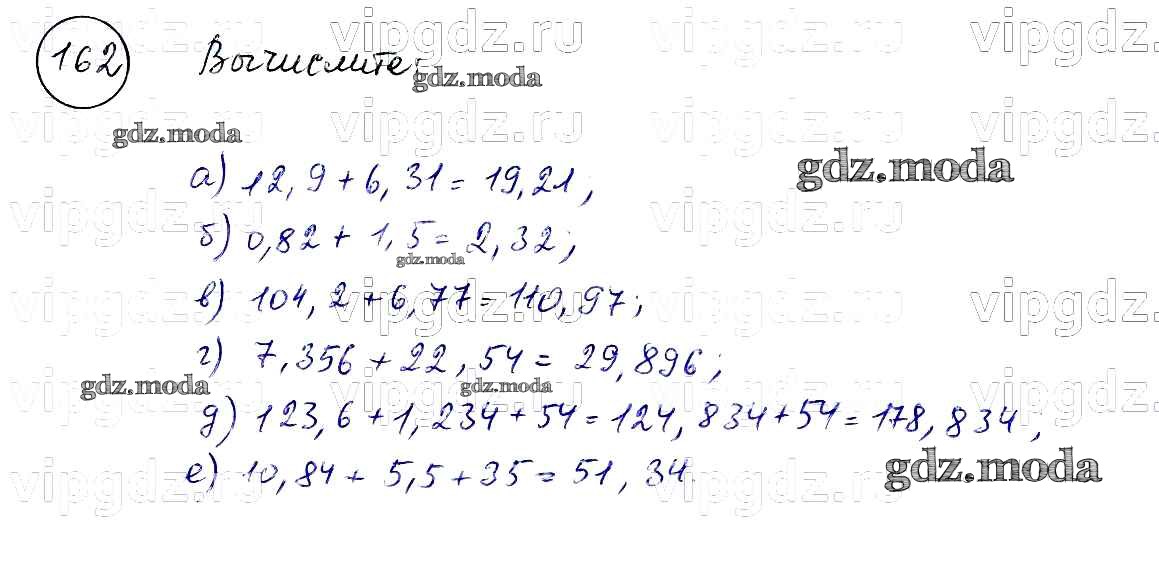 vipgdz.ru vipgdz.ru vipgdz.ru vipgdz.
162 Вычислите:
gdz.moda
vipgdz.ru vipgdz.ru vipgdz.ru vipgdz.
gdz.moda
gdz.moda
а) 12,9 + 6,31 = 19,21;
vipgdz.ru vipgdz.ru vipgdz.ru vipgdz.
б) 0,82 + 1,5 = 2,32;
gdz.moda
в) 104,2 + 6,77 = 110,97;
vipgdz.ru vipgdz.ru vipgdz.ru vipgdz.
г) 7,356 + 22,54 = 29,896;
gdz.moda gdz.moda
vipgdz.ru vipgdz.ru vipgdz.ru vipgdz.
д) 123,6 + 1,234 + 54 = 124,834 + 54 = 178,834;
gdz.moda
е) 10,84 + 5,5 + 35 = 51,34.
vipgdz.ru vipgdz.ru vipgdz.ru vipgdz.